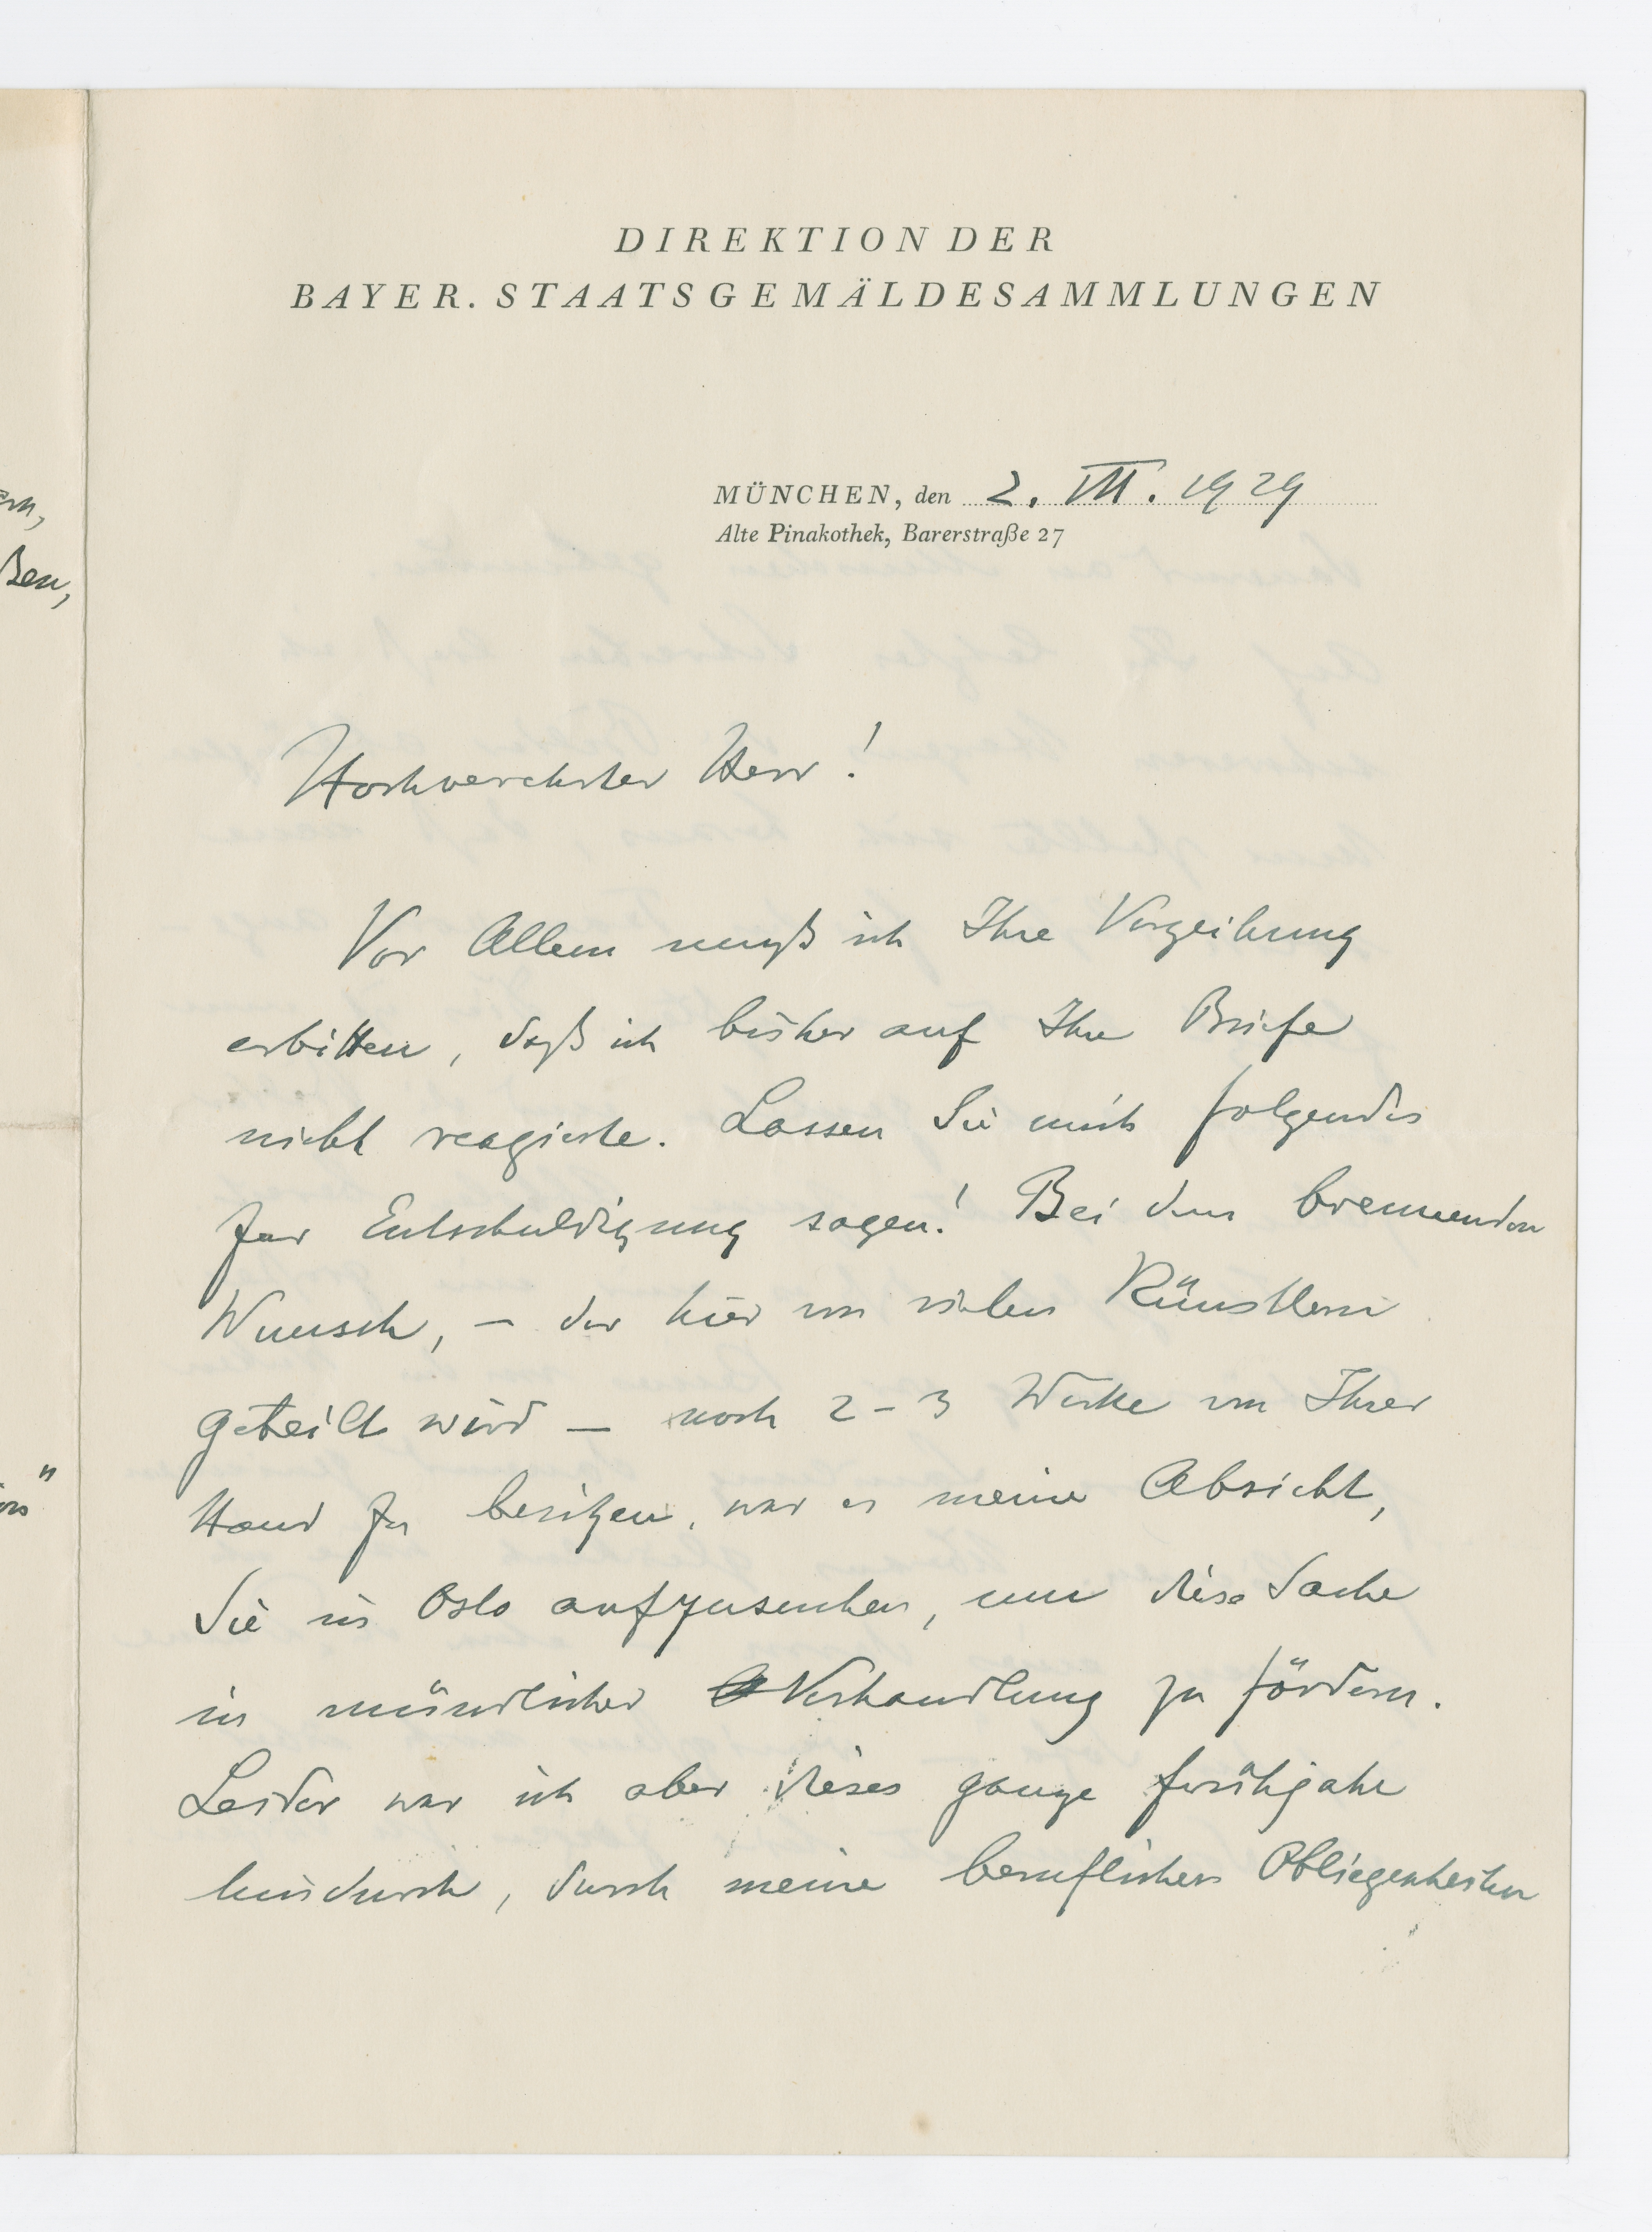 DIREKTION DER
BAYER. STAATSGEMÄLDESAMMLUNGEN
MÜNCHEN, den 2. VII. 1929
Alte Pinakothek, Barerstraße 27
Hochverehrter Herr!
Vor Allem muß ich Ihre Verzeihung
erbitten, daß ich bisher auf Ihre Briefe
nicht reagierte. Lassen Sie mich folgendes
zur Entschuldigung sagen! Bei dem brennenden
Wunsch, – der hier von vielen Künstlern
geteilt wird – noch 2–3 Werke von Ihrer
Hand zu besitzen, war es meine Absicht,
Sie in Oslo aufzusuchen, um diese Sache
in mündlicher Verhandlung zu fördern.
Leider war ich aber dieses ganze Frühjahr
hindurch, durch meine beruflichen Obliegenheiten